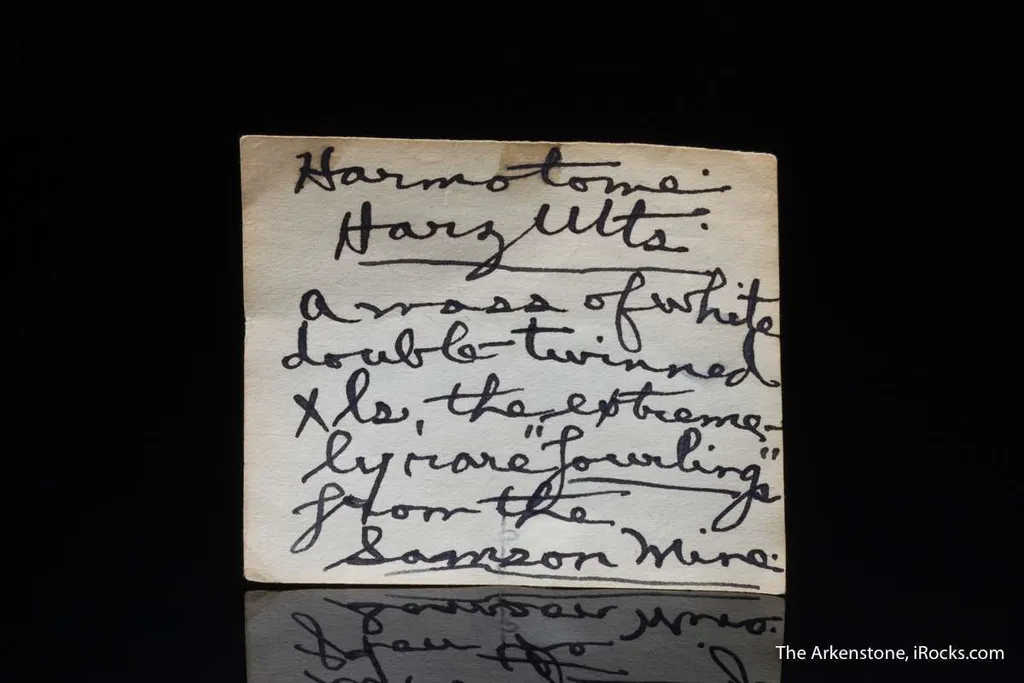 Harmotome.
Harz Mts.
a mass of white
double-twinned
xls, the extreme-
ly rare "fourlings"
from the
Samson Mine.
The Arkenstone, iRocks.com